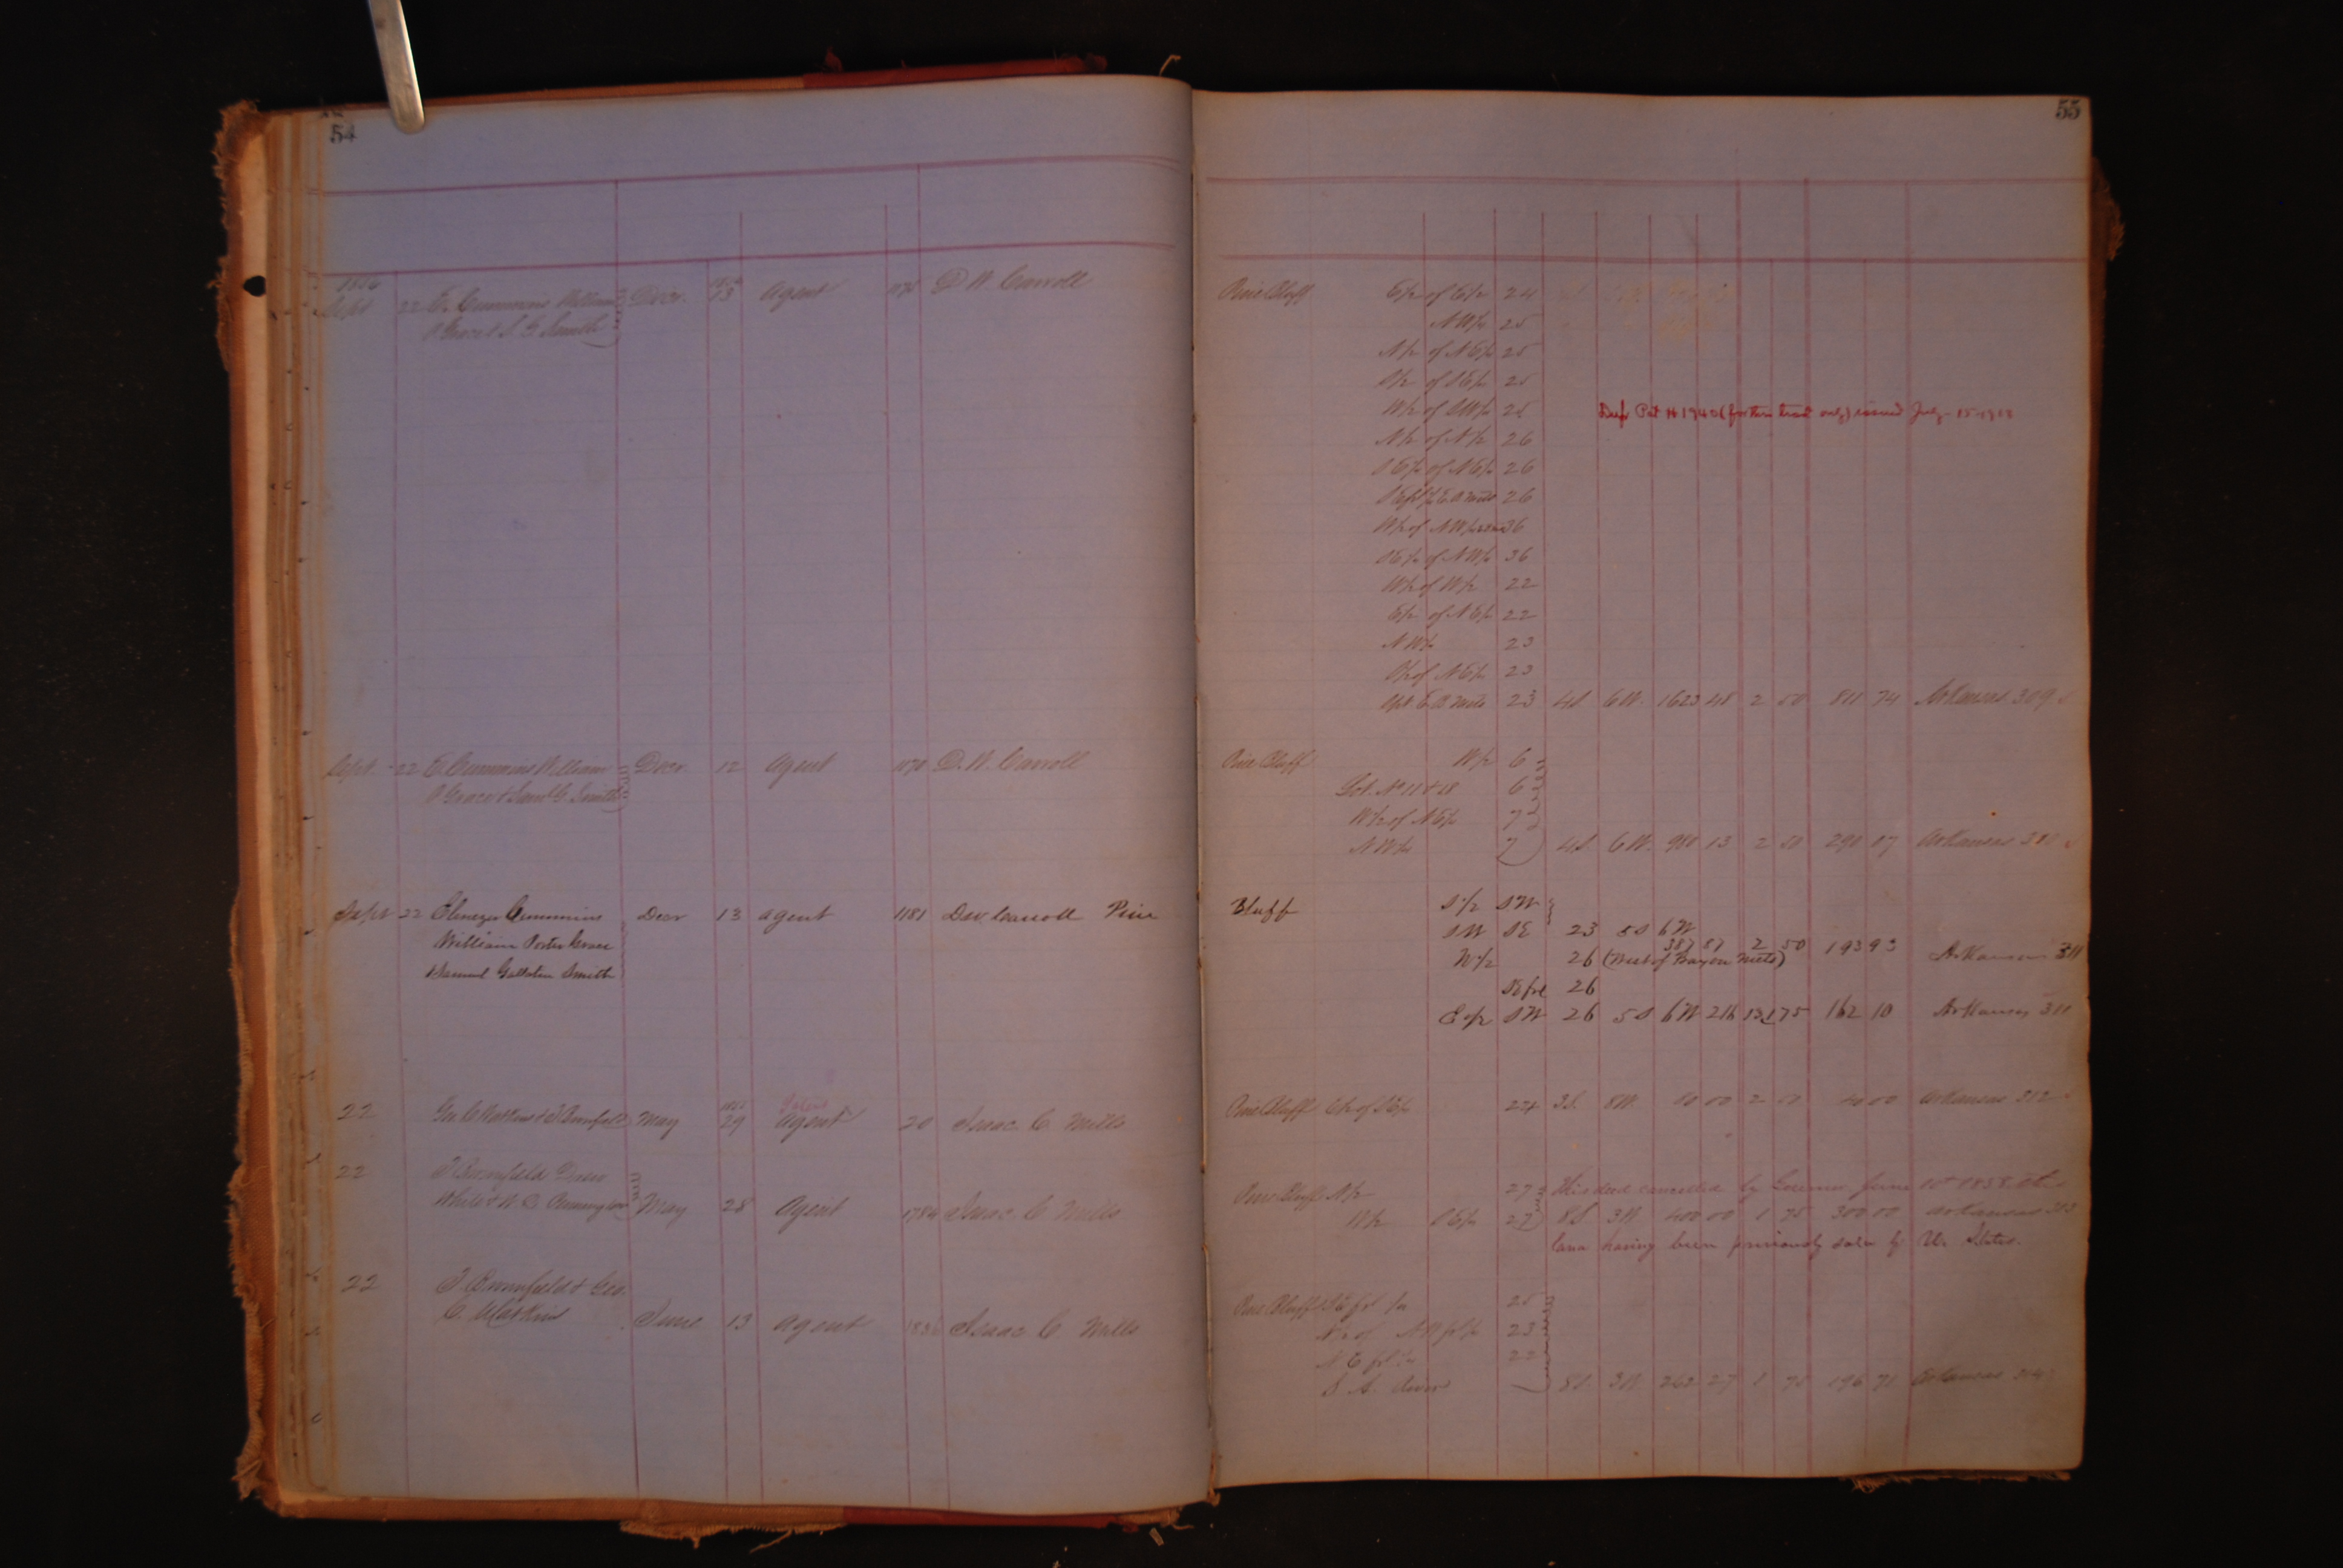 54
1856
Sept 22 E. Cummins William Decr. 13 Agent 1178 D. W. Carroll
P Grace & S. G. Smith
Sept. 22 E. Cummins William Decr 12 Agent 1178 D. W. Carroll
P Grace & Saml G. Smith
Sept 22 Ebenezer Cummins Decr 13 agent 1181 Dav Carroll Pine
William Porter Grace
& Samuel Gallatin Smith
22 Geo. C Watkins & May 29 Agent 20 Isaac C. Mills
22
White & May 28 Agent 1784 Isaac C Mills
22 & Geo.
C. Watkins June 13 Agent Isaac C Mills
55
Pine Bluff E½ of E½ 24
NW¼ 25
N½ of NE¼ 25
S½ of SE¼ 25
W½ of SW¼ 25 Dup Pat # 1940 (for this tract only) issued July 15-1913
N½ of N½ 26
SE¼ of NE¼ 26
26
W½ of NW¼ 36
SE¼ of NW¼ 36
W½ of W½ 22
E½ of NE¼ 22
NW¼ 23
S½ of NE¼ 23
23 4S 6W. 1623 48 2 50 811 74 Arkansas 309
Pine Bluff W½ 6
Lot. No 11 & 18 6
W½ of NE¼ 7
NW¼ 7 4S 6W. 980 13 2 50 290 07 Arkansas 310
Bluff S½ SW
SW SE 23 5S 6W
387 87 2 50 193 93
W½ 26 (West of Bayou Meto) Arkansas 311
SE frl 26
E½ SW 26 5S 6W 216 13 1 75 162 10 Arkansas 311
Pine Bluff E½ of SE¼ 24 3S. 8W. 80 00 2 50 40 00 Arkansas 312
Pine Bluff N½ 27 This deed cancelled by Governor June 10th 1858. the
W½ SE¼ 27 8S 3W 400 00 1 75 300 00 Arkansas 313
land having been previously sold by U. States.
Pine Bluff SE frl ¼ 25
N½ of NW frl ¼ 23
NE frl ¼ 22
S A. River 8S. 3W 262 27 1 75 196 71 Arkansas 314